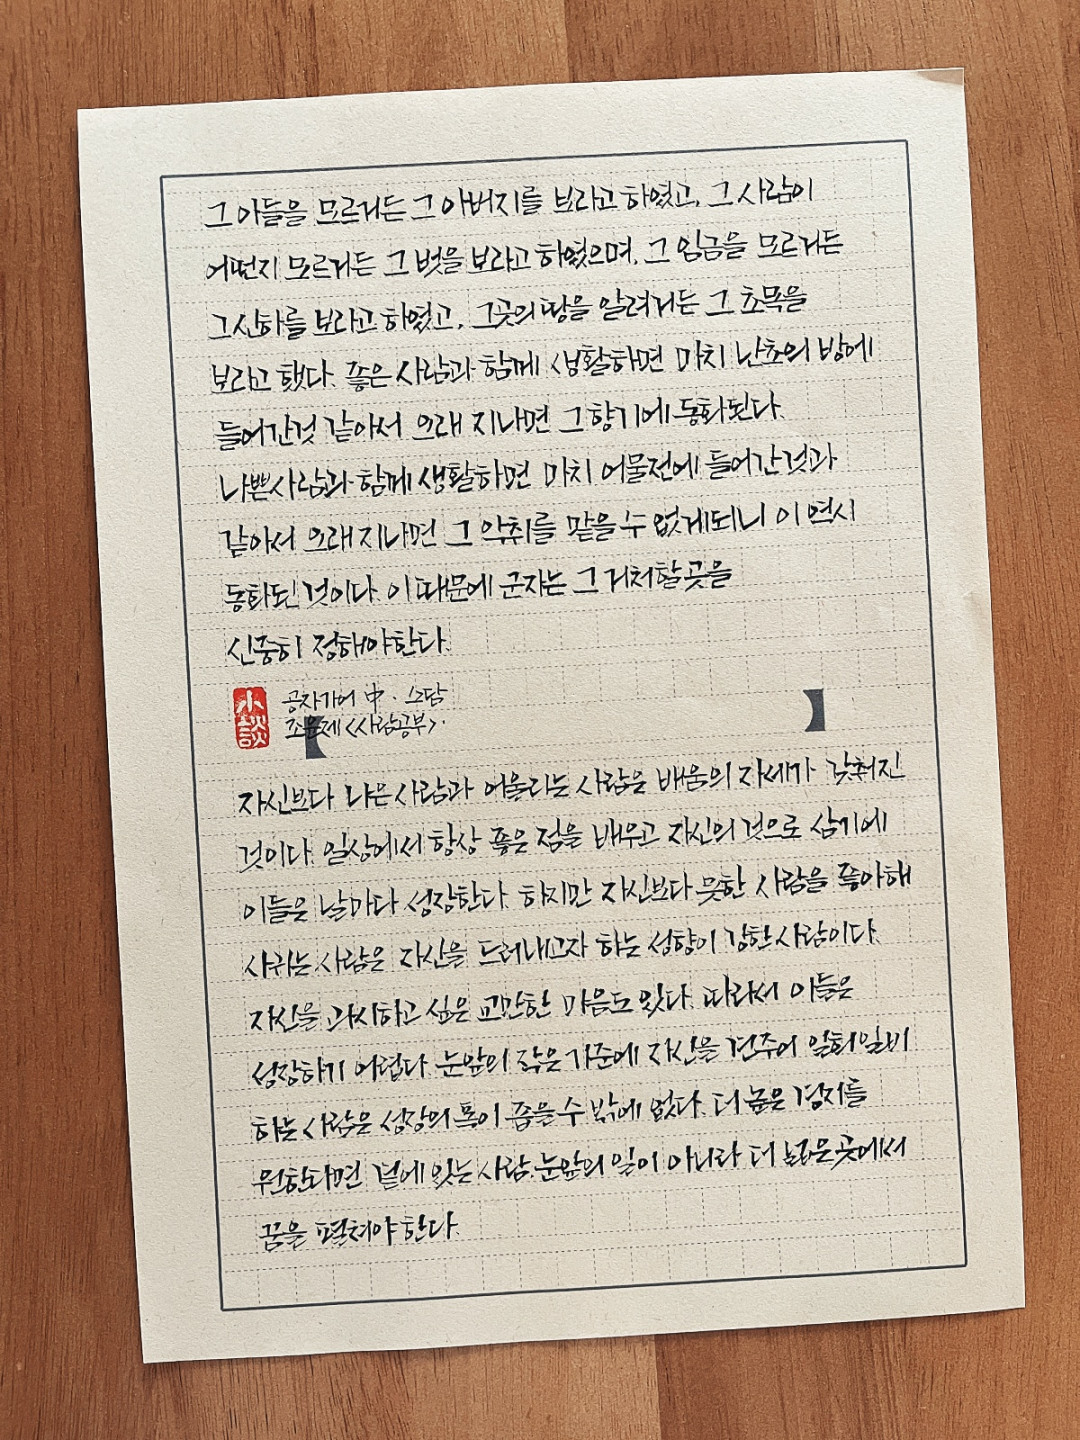 그 아들을 모르거든 그 아버지를 보라고 하였고, 그 사람이
어떤지 모르거든 그 벗을 보라고 하였으며, 그 임금을 모르거든
그 신하를 보라고 하였고, 그곳의 땅을 알려거든 그 초목을
보라고 했다. 좋은 사람과 함께 생활하면 마치 난초의 방에
들어간것 같아서 오래 지나면 그 향기에 동화된다.
나쁜사람과 함께 생활하면 마치 어물전에 들어간것과
같아서 오래 지나면 그 악취를 맡을 수 없게되니 이 역시
동화된 것이다. 이 때문에 군자는 그 거처할 곳을
신중히 정해야한다.
小談
공자가어 中 · 소담
조윤제 <사람공부>.
자신보다 나은 사람과 어울리는 사람은 배움의 자세가 갖춰진
것이다. 일상에서 항상 좋은 점을 배우고 자신의 것으로 삼기에
이들은 날마다 성장한다. 하지만 자신보다 못한 사람을 좋아해
사귀는 사람은 자신을 드러내고자 하는 성향이 강한 사람이다.
자신을 과시하고 싶은 교만한 마음도 있다. 따라서 이들은
성장하기 어렵다. 눈앞의 작은 기준에 자신을 견주어 일희일비
하는 사람은 성장의 폭이 좁을 수 밖에 없다. 더 높은 경지를
원한다면 곁에 있는 사람, 눈앞의 일이 아니라 더 넓은 곳에서
꿈을 펼쳐야 한다.